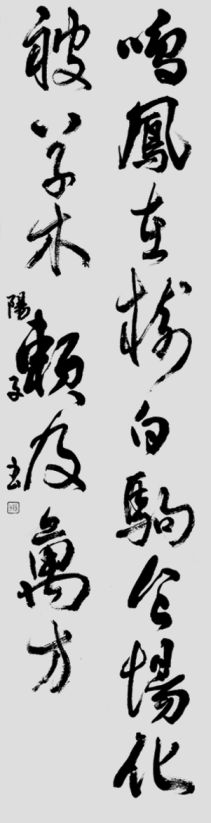 鳴鳳在樹白駒食場化
被草木賴及萬方
陽子